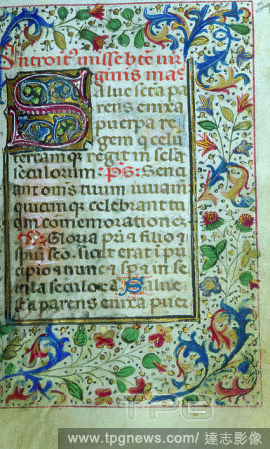 Introitus misse bte vir
ginis mar
Salve scta pa
rens enixa
puerpa re
gem q celu
terramq regit in secla
seculorum Ps Senci
ant omnes tuum iuvam
quicumq celebrant tu
am comemorationem
V Gloria pri et filio et
spui sco. sicut erat i pri
cipio et nunc et sp et in se
cula seculorum Salve
scta parens enixa puer
TPG
www.tpgnews.com/ 達志影像